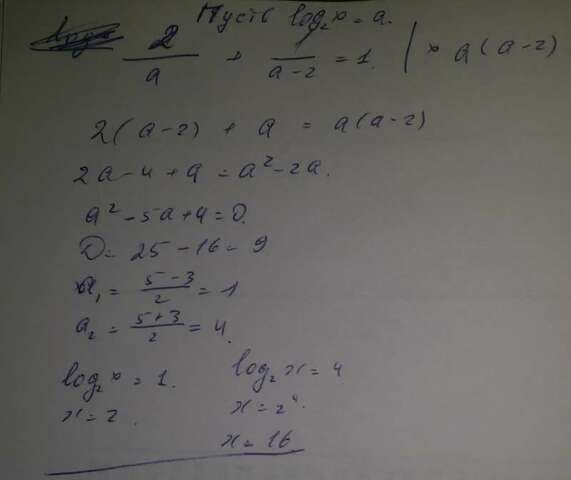 Пусть log₂x = a.
2/a + 1/(a-2) = 1. | × a(a-2)
2(a-2) + a = a(a-2)
2a-4+a = a²-2a.
a²-5a+4=0.
D= 25-16=9
a₁ = (5-3)/2 = 1
a₂ = (5+3)/2 = 4.
log₂x = 1. log₂x = 4
x=2. x=2⁴.
x=16